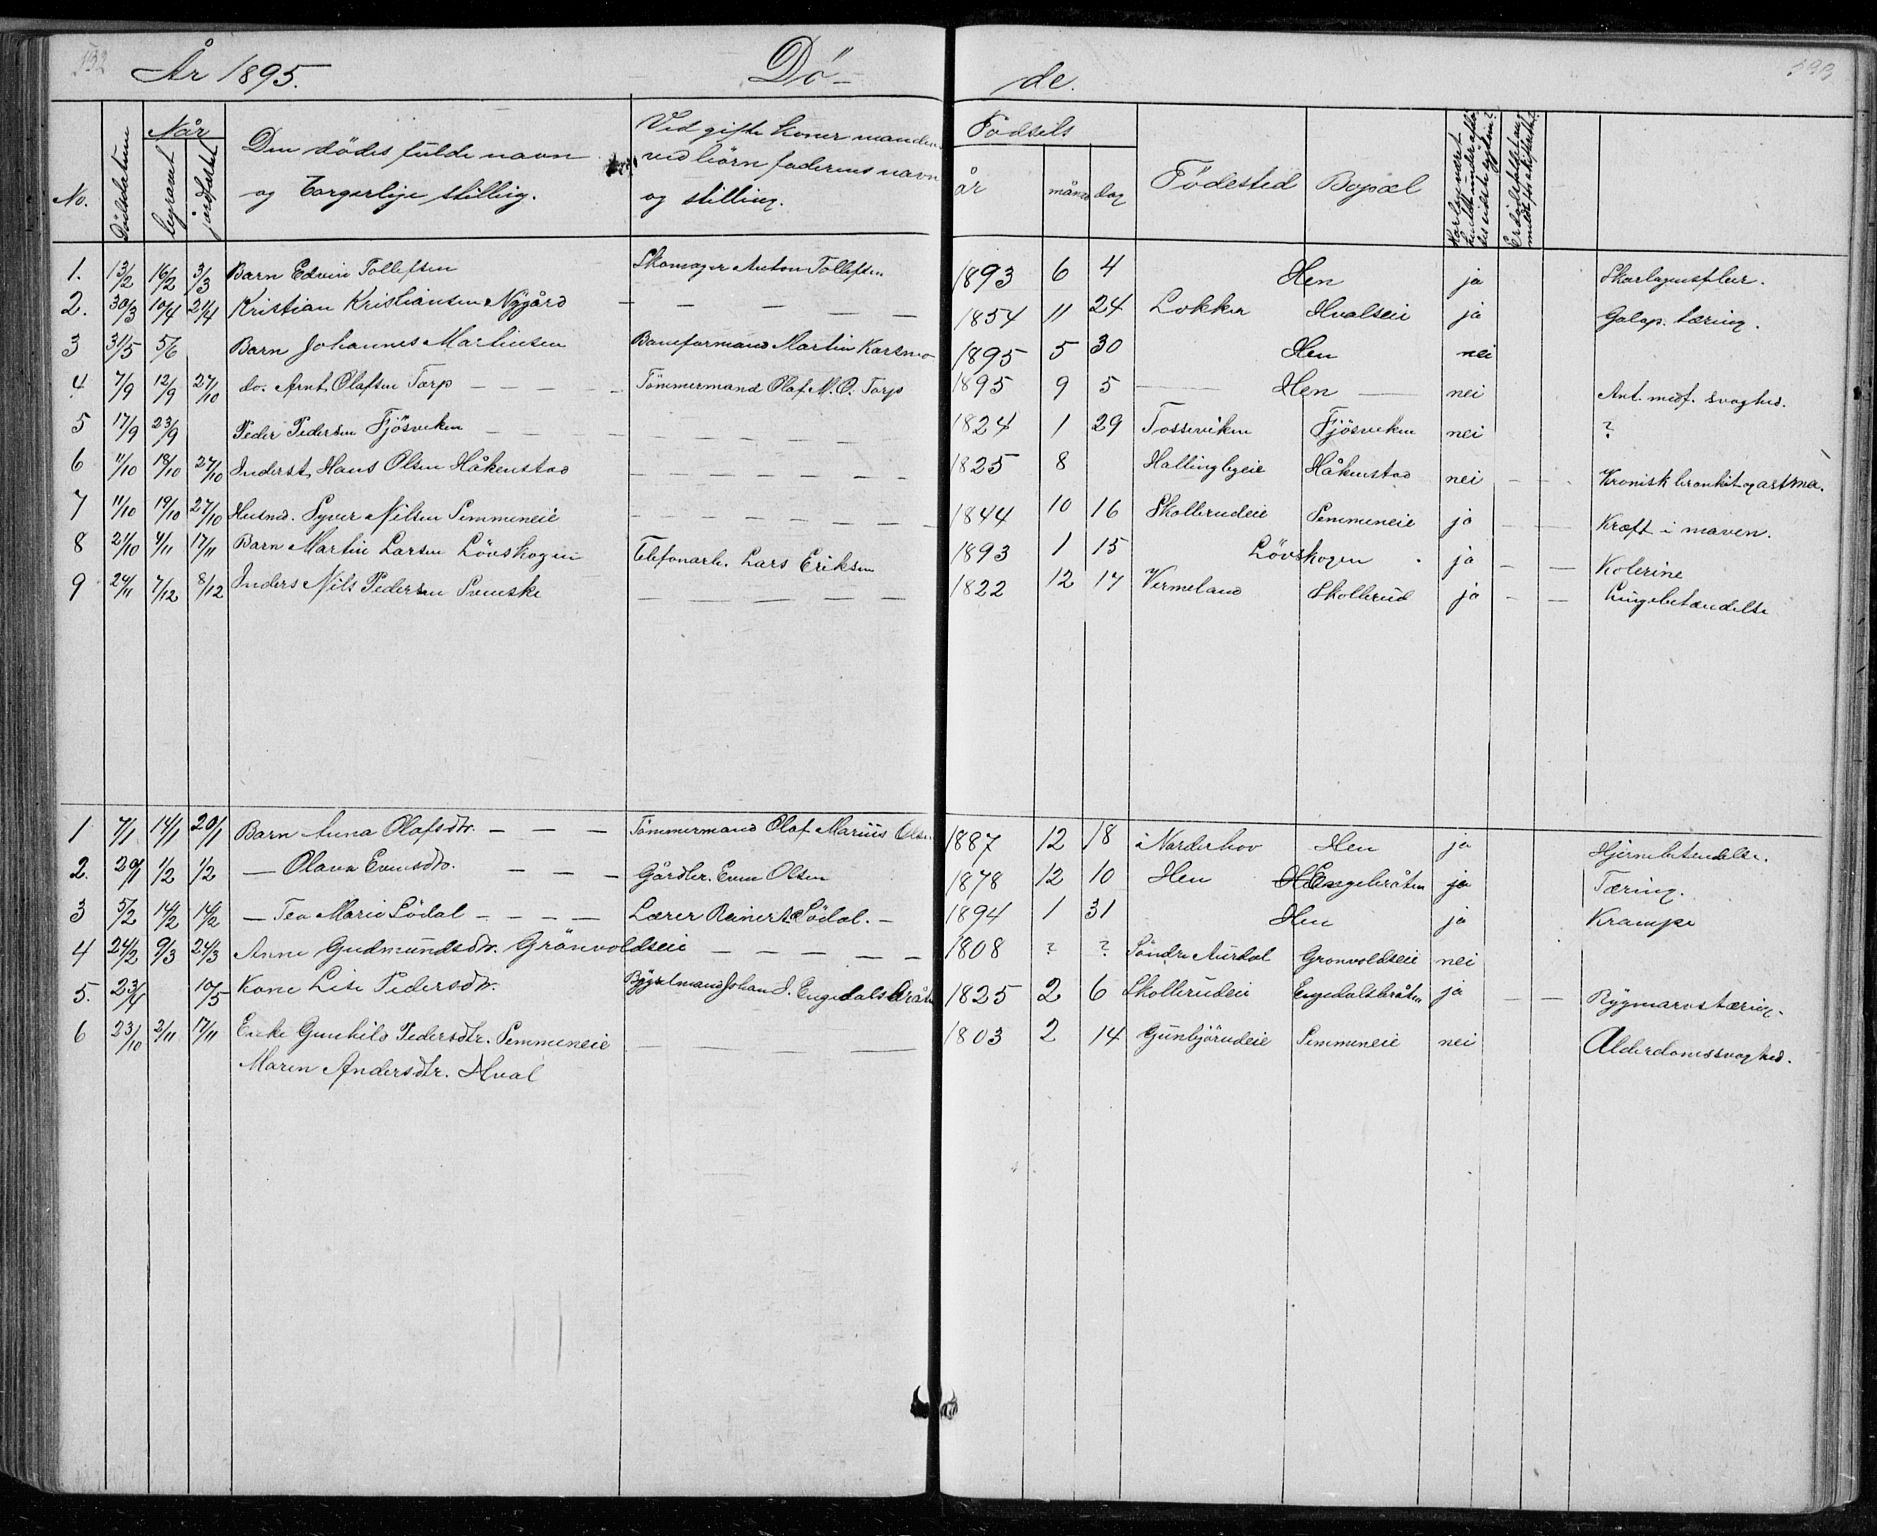 132 År 1895. Dö- de. 193
No. Dödsdatum Når begravet jordfæstet Den dödes fulde navn og borgerlige stilling. Ved gifte koner manden ved börn faderens navn og stilling. Födsels år måned dag Födested Bopæl
1. 13/2 16/2 3/3 Barn Edvin Tollefsen Skomager Anton Tollefsen 1893 6 4 Hen ja Skarlagensfeber.
2. 30/3 10/4 21/4 Kristian Kristiansen Nygård — — — — 1854 11 24 Lokker Hvalseie ja Galop. tæring.
3 31/5 5/6 Barn Johannes Martinsen Baneformand Martin Karsmo 1895 5 30 Hen nei
4 7/9 12/9 27/10 do. Arnt Olafsen Torp — — — - Tömmermand Olaf M. O. Torp 1895 9 5 — Hen — nei Ant. medf. svaghed.
5 17/9 23/9 Peder Pedersen Fjösviken — — — — 1824 1 29 Tosseviken Fjösviken nei ?
6 11/10 18/10 27/10 Inderst Hans Olsen Håkenstad — — — — 1825 8 Hallingbyeie Håkenstad nei — — Kronisk bronkit og astma.
7 11/10 19/10 27/10 Husmd. Syver Nilsen Semmeneie — — — — 1844 10 16 Skollerudeie Semmeneie ja — — Kræft i maven.
8 21/10 4/11 17/11 Barn Martin Larsen Lövskogen Telefonarb. Lars Eriksen 1893 1 15 Lövskogen ja — — Kolerine
9 24/11 7/12 8/12 Inders Nils Pedersen Svenske — — — — 1822 12 17 Vermeland Skollerud ja — — Lungebetændelse
1 7/1 14/1 20/1 Barn Anna Olafsdtr. — — — Tömmermand Olaf Marius Olsen 1887 12 18 i Norderhov Hen ja Hjernebetendelse.
2. 29/1 1/2 1/2 — Olava Evensdtr. — — — Gårdbr. Even Olsen 1878 12 10 Hen Engebråten ja Tæring.
3 5/2 14/2 14/2 — Tea Marie Södal — — — — Lærer Reinert Södal. — 1894 1 31 Hen ja Krampe
4 24/2 9/3 24/3 Anne Gudmundsdtr. Grönvoldseie — — — — 1808 ? ? Söndre Aurdal Gronvoldseie nei
5. 23/4 10/5 Kone Lise Pedersdtr. Bygselmand Johan J. Engedalsbråten 1825 2 6 Skollerudeie Engedalsbråten ja — — Rygmarvstæring.
6 23/10 2/11 17/11 Enke Gunhild Pedersdtr. Semmeneie — — — — 1803 2 14 Gunbjörudeie Semmeneie nei Alderdomssvaghed.
Maren Andersdtr. Hval